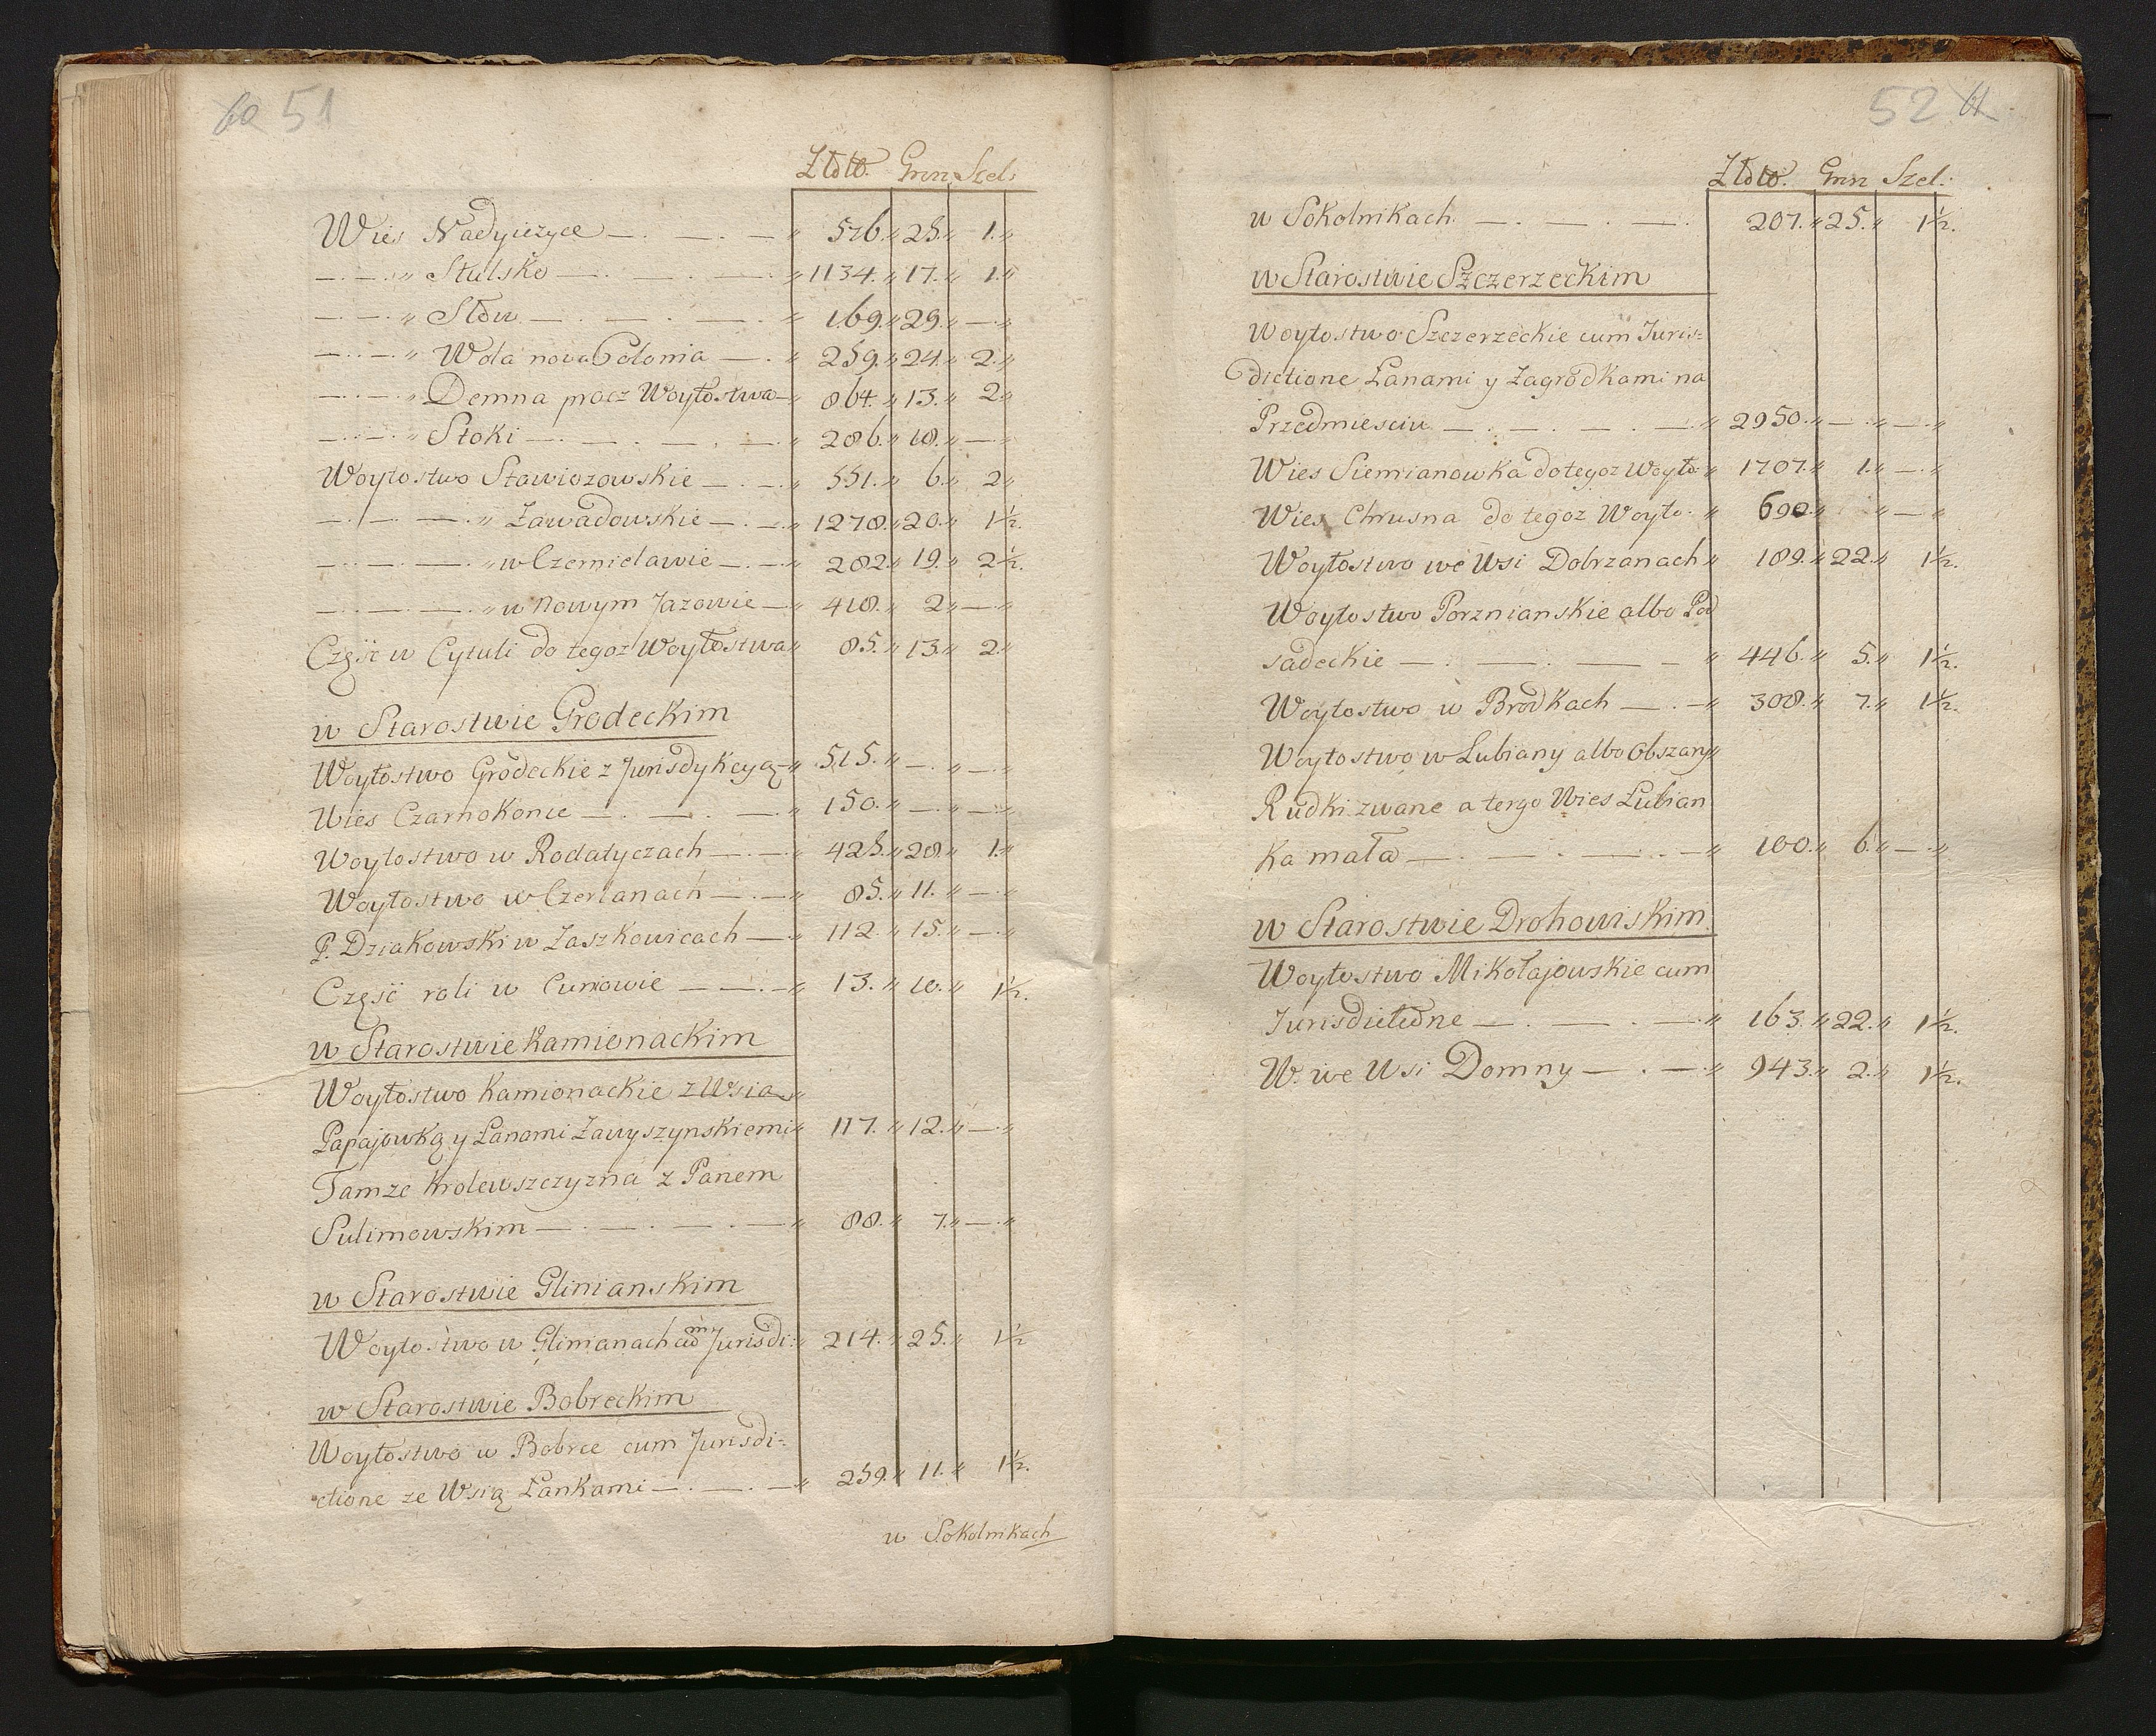 60 51
Złdto. Grzn. Szel:
Wies Nadyiezyce — . — . — " 526. " 25. " 1. "
— . — . " Stulsko — . — . — " 1134. " 17. " 1. "
— . — . " Słow — . — . — " 169. " 29. " — "
— . — . " Wola nova Colonia — . " 259. " 24. " 2. "
— . — . " Demna procz Woytostwa — " 864. " 13. " 2 "
— . — . " Stoki — . — . — " 286. " 18. " — "
Woytostwo Stawiozowskie — . — " 551. " 6. " 2 "
— . — . — " Zawadowskie — . — " 1278. " 20. " 1½.
— . — . — " w Czernielawie — . — " 282. " 19. " 2½.
— . — . — " w Nowym Jazowie — " 418. " 2 " — "
Część w Cytuli do tegoz Woytostwa " 85. " 13. " 2. "
w Starostwie Grodeckim
Woytostwo Grodeckie z Jurisdykcyą — " 515. " — . " — . "
Wies Czarnokonie — . — . — " 150. " — . " — . "
Woytostwo w Rodatyczach — . — " 425. " 28. " 1. "
Woytostwo w Czerlanach — . — " 85. " 11. " — . "
P. Dziakowski w Zaszkowicach — " 112. " 15. " — . "
Część roli w Cuniowie — — . — " 13. " 10. " 1½.
w Starostwie Kamionackim
Woytostwo Kamionackie z Wsią "
Papajowką y Łanami Zawyszynskiemi " 117. " 12. " — . "
Tamze Krolewszczyzna z Panem
Sulimowskim — . — . — . — " 88. " 7. " — . "
w Starostwie Glinianskim
Woytostwo w Glinianach cum Jurisdi: " 214. " 25. " 1½
w Starostwie Bobreckim
Woytostwo w Bobrce cum Jurisdi=
ctione ze Wsią Łankami — . — . — " 259. " 11. " 1½.
w Sokolnikach
52 61
Złdto. Grzn Szel:
w Sokolnikach — . — . — . 207. " 25. " 1½.
w Starostwie Szczerzeckim
Woytostwo Szczerzeckie cum Juris=
dictione Łanami y Zagrodkami na
Przedmiesciu — . — . — . — " 2950. " — . " — . "
Wies Siemianowka do tegoz Woyto " 1707. " 1. " — . "
Wies Chrusna do tegoz Woyto. " 690. " " — "
Woytostwo we Wsi Dobrzanach " 189. " 22. " 1½.
Woytostwo Porznianskie albo Pod
sadeckie — . — . — — " 446. " 5. " 1½.
Woytostwo w Brodkach — . — " 308. " 7. " 1½.
Woytostwo w Lubiany albo Obszary "
Rudki zwane a tergo Wies Lubian
ka mała — . — . — . . — " 100. " 6. " — . "
w Starostwie Drohowiskim
Woytostwo Mikołajowskie cum
Jurisdictione — . — . — . " 163. " 22. " 1½.
W. we Wsi Domny — . — . " 943. " 2. " 1½.